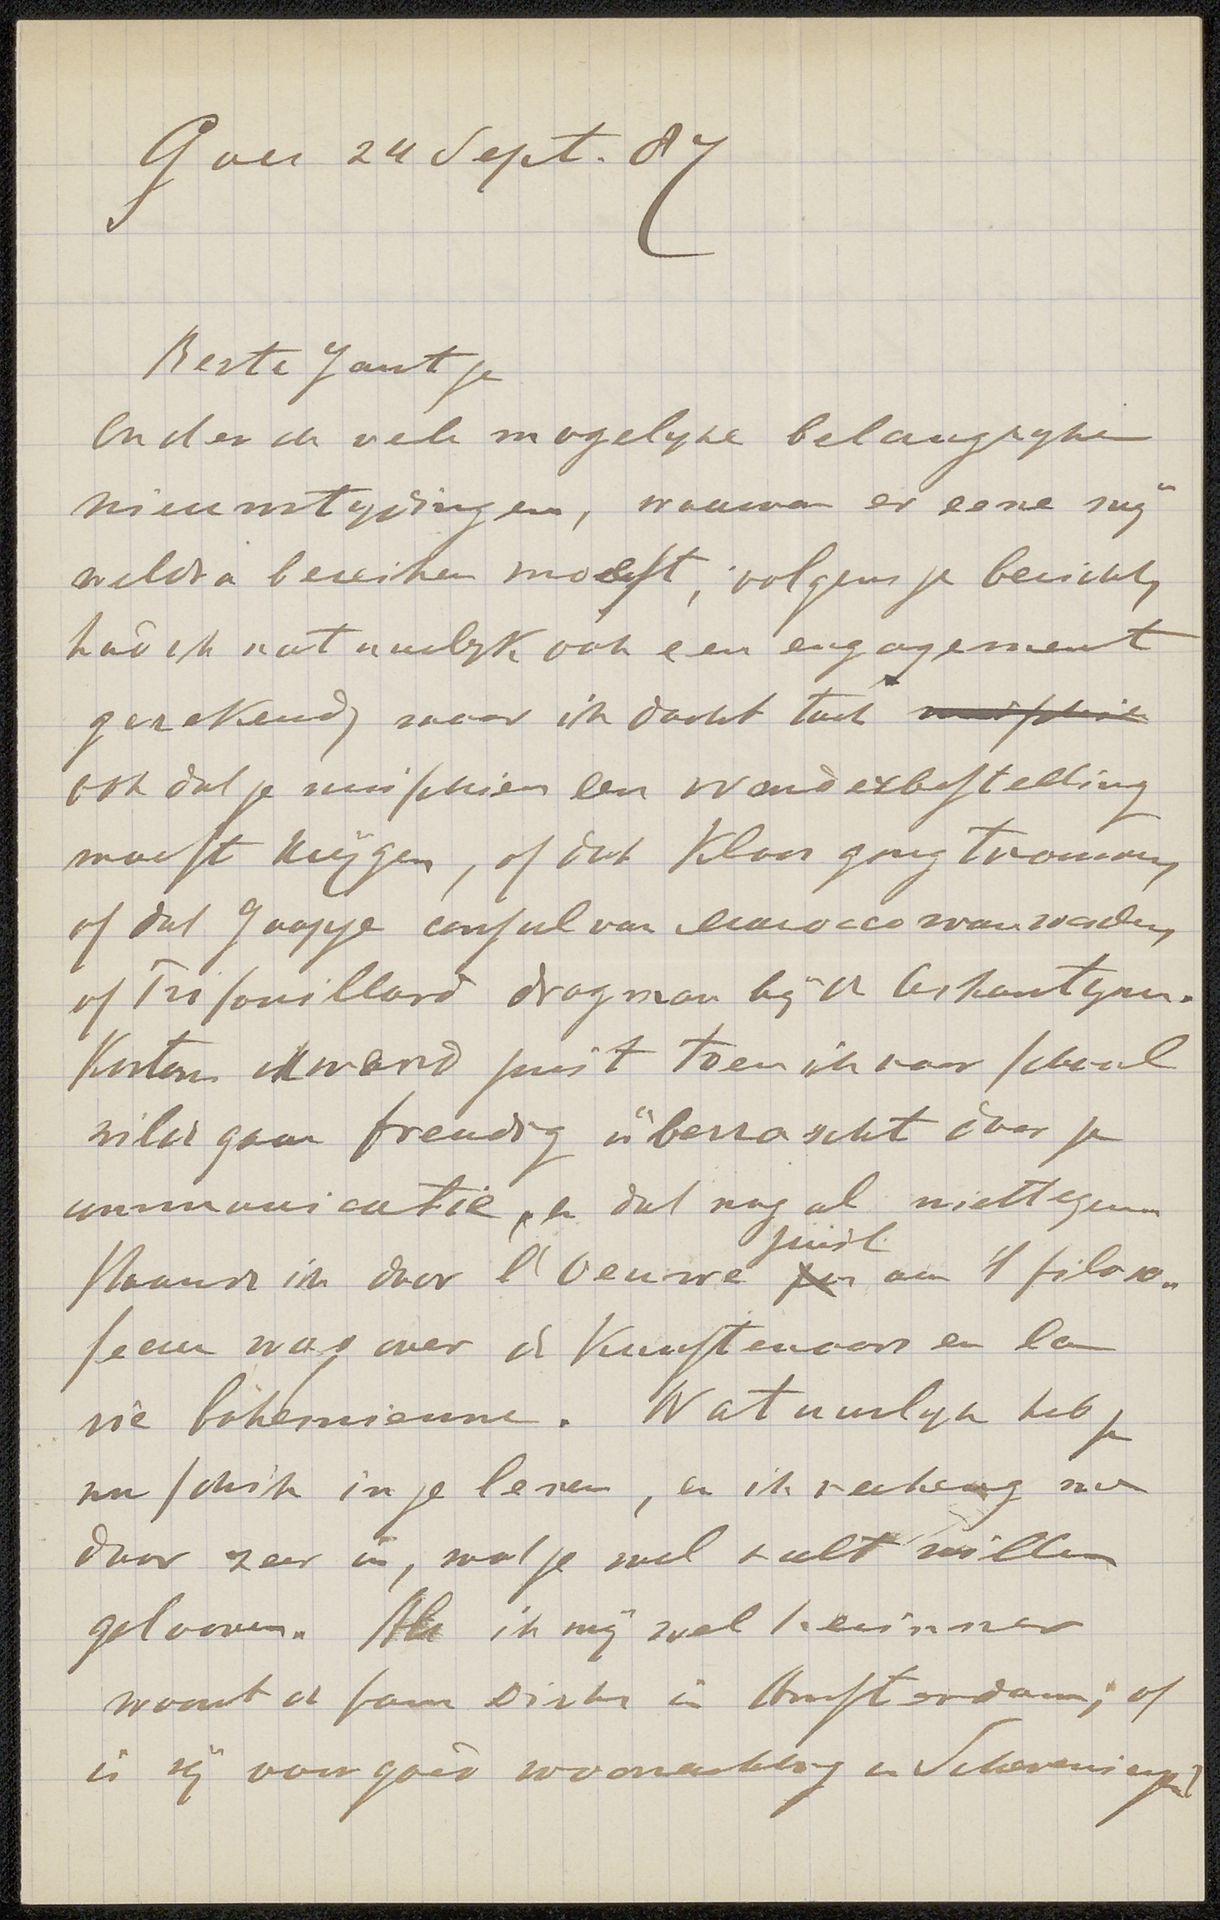 Goes 24 Sept. 87
Beste Jantje
Onder de vele mogelyke belangryke
nieuwstydingen, waarvan er eene mij
weldra bereiken moest, volgens je bericht,
had ik natuurlyk ook een engagement
gerekend, maar ik dacht toch misschien
ook dat je misschien een wandexbestelling
moest krijgen, of dat Klaas ging trouwen,
of dat Jaapje consul van Marocco was worden,
of Trifouillard drogman bij de Ashantynen.
Kortom ik werd juist toen ik naar school
wilde gaan freudig überrascht door je
communicatie, en dat nog al niettegen-
staande ik door l'Oeuvre juist aan 't filozo-
feeren was over de Kunstenaars en la
vie bohémienne. Natuurlyk heb je
nu schik in je leven, en ik verheug me
daar zeer in, wat je wel zult willen
gelooven. Als ik mij wel herinner
woont de fam in Amsterdam; of
is zij voor goed woonachtig in Scheveningen?